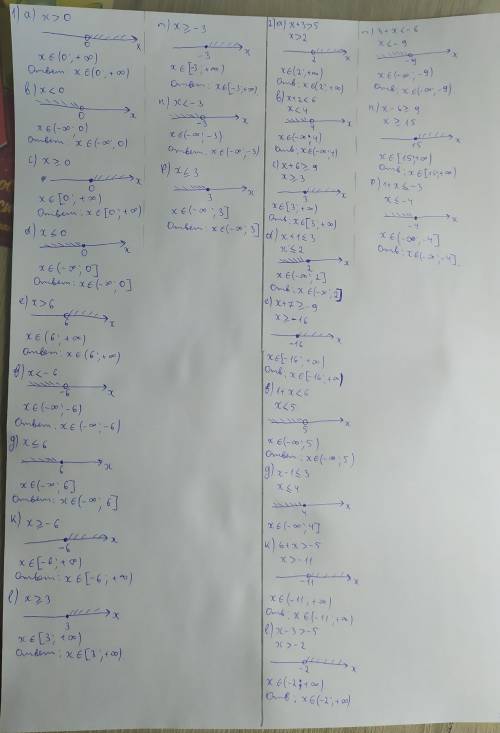 1) a) x > 0
0 x
x ∈ (0 ; +∞)
Ответ x ∈ (0 ; +∞)
b) x < 0
0 x
x ∈ (-∞ ; 0)
Ответ x ∈ (-∞ ; 0)
c) x ≥ 0
0 x
x ∈ [0 ; +∞)
Ответ: x ∈ [0 ; +∞)
d) x ≤ 0
0 x
x ∈ (-∞ ; 0]
Ответ: x ∈ (-∞ ; 0]
e) x > 6
6 x
x ∈ (6 ; +∞)
Ответ: x ∈ (6 ; +∞)
f) x < -6
-6 x
x ∈ (-∞ ; -6)
Ответ: x ∈ (-∞ ; -6)
g) x ≤ 6
6 x
x ∈ (-∞ ; 6]
Ответ: x ∈ (-∞ ; 6]
k) x ≥ -6
-6 x
x ∈ [-6 ; +∞)
Ответ: x ∈ [-6 ; +∞)
l) x ≥ 3
3 x
x ∈ [3 ; +∞)
Ответ: x ∈ [3 ; +∞)
m) x ≥ -3
-3 x
x ∈ [-3 ; +∞)
Ответ: x ∈ [-3 ; +∞)
n) x < -3
-3 x
x ∈ (-∞ ; -3)
Ответ: x ∈ (-∞ ; -3)
p) x ≤ 3
3 x
x ∈ (-∞ ; 3]
Ответ: x ∈ (-∞ ; 3]
2) a) x + 3 > 5
x > 2
2 x
x ∈ (2 ; +∞)
Отв: x ∈ (2 ; +∞)
b) x + 2 < 6
x < 4
4 x
x ∈ (-∞ ; 4)
Отв: x ∈ (-∞ ; 4)
c) x + 6 ≥ 9
x ≥ 3
3 x
x ∈ [3 ; +∞)
Отв: x ∈ [3 ; +∞)
d) x + 1 ≤ 3
x ≤ 2
2 x
x ∈ (-∞ ; 2]
Отв: x ∈ (-∞ ; 2]
e) x + 7 ≥ -9
x ≥ -16
-16 x
x ∈ [-16 ; +∞)
Отв: x ∈ [-16 ; +∞)
f) 1 + x < 6
x < 5
5 x
x ∈ (-∞ ; 5)
Отв: x ∈ (-∞ ; 5)
g) x - 1 ≤ 3
x ≤ 4
4 x
x ∈ (-∞ ; 4]
k) 6 + x > -5
x > -11
-11 x
x ∈ (-11 ; +∞)
Отв: x ∈ (-11 ; +∞)
l) x - 3 > -5
x > -2
-2 x
x ∈ (-2 ; +∞)
Отв: x ∈ (-2 ; +∞)
m) 3 + x < -6
x < -9
-9 x
x ∈ (-∞ ; -9)
Отв: x ∈ (-∞ ; -9)
n) x - 6 ≥ 9
x ≥ 15
15 x
x ∈ [15 ; +∞)
Отв: x ∈ [15 ; +∞)
p) 1 + x ≤ -3
x ≤ -4
-4 x
x ∈ (-∞ ; -4]
Отв: x ∈ (-∞ ; -4].